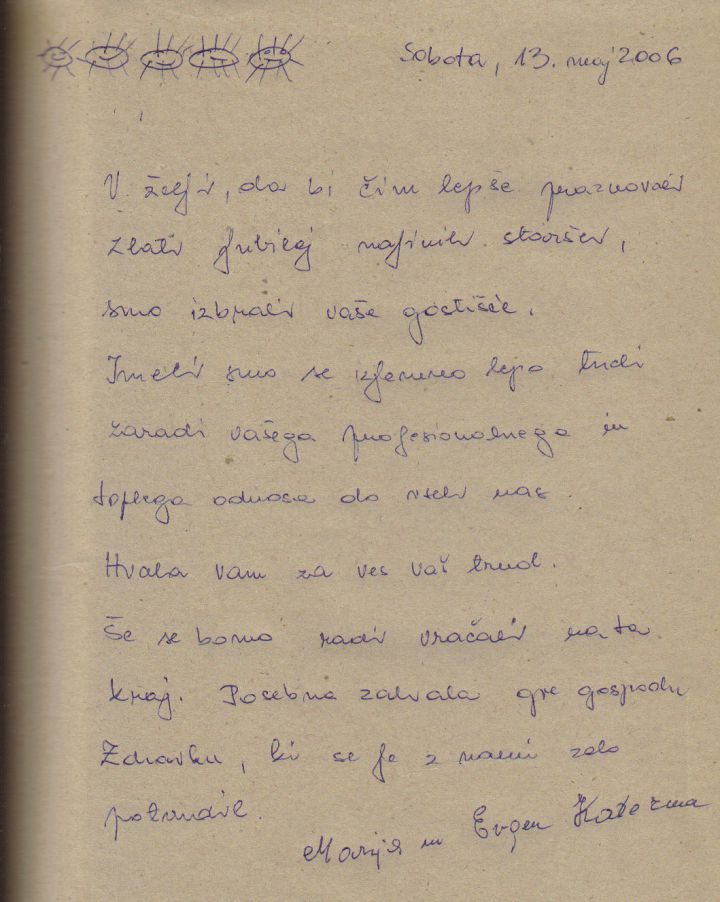 Sobota, 13. maj 2006
V želji, da bi čim lepše praznovali
zlati jubilej najinih staršev,
smo izbrali vaše gostišče.
Imeli smo se izjemno lepo tudi
zaradi vašega profesionalnega in
toplega odnosa do vseh nas.
Hvala vam za ves vaš trud.
Še se bomo radi vračali na ta
kraj. Posebna zahvala gre gospodu
Zdravku, ki se je z nami zelo
potrudil.
Marija in Evgen